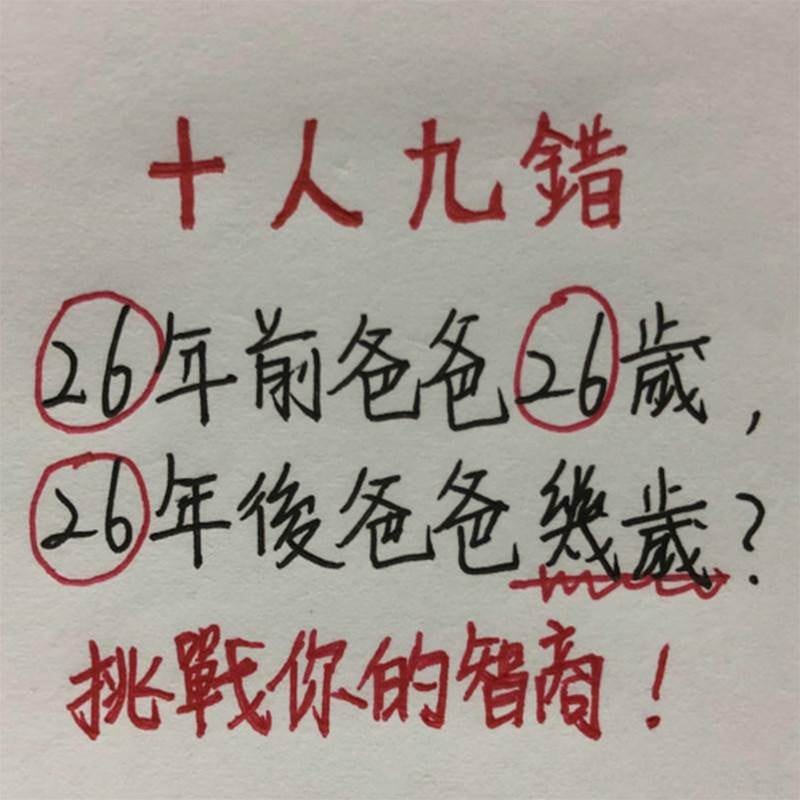 十人九錯
26年前爸爸26歲,
26年後爸爸幾歲?
挑戰你的智商!